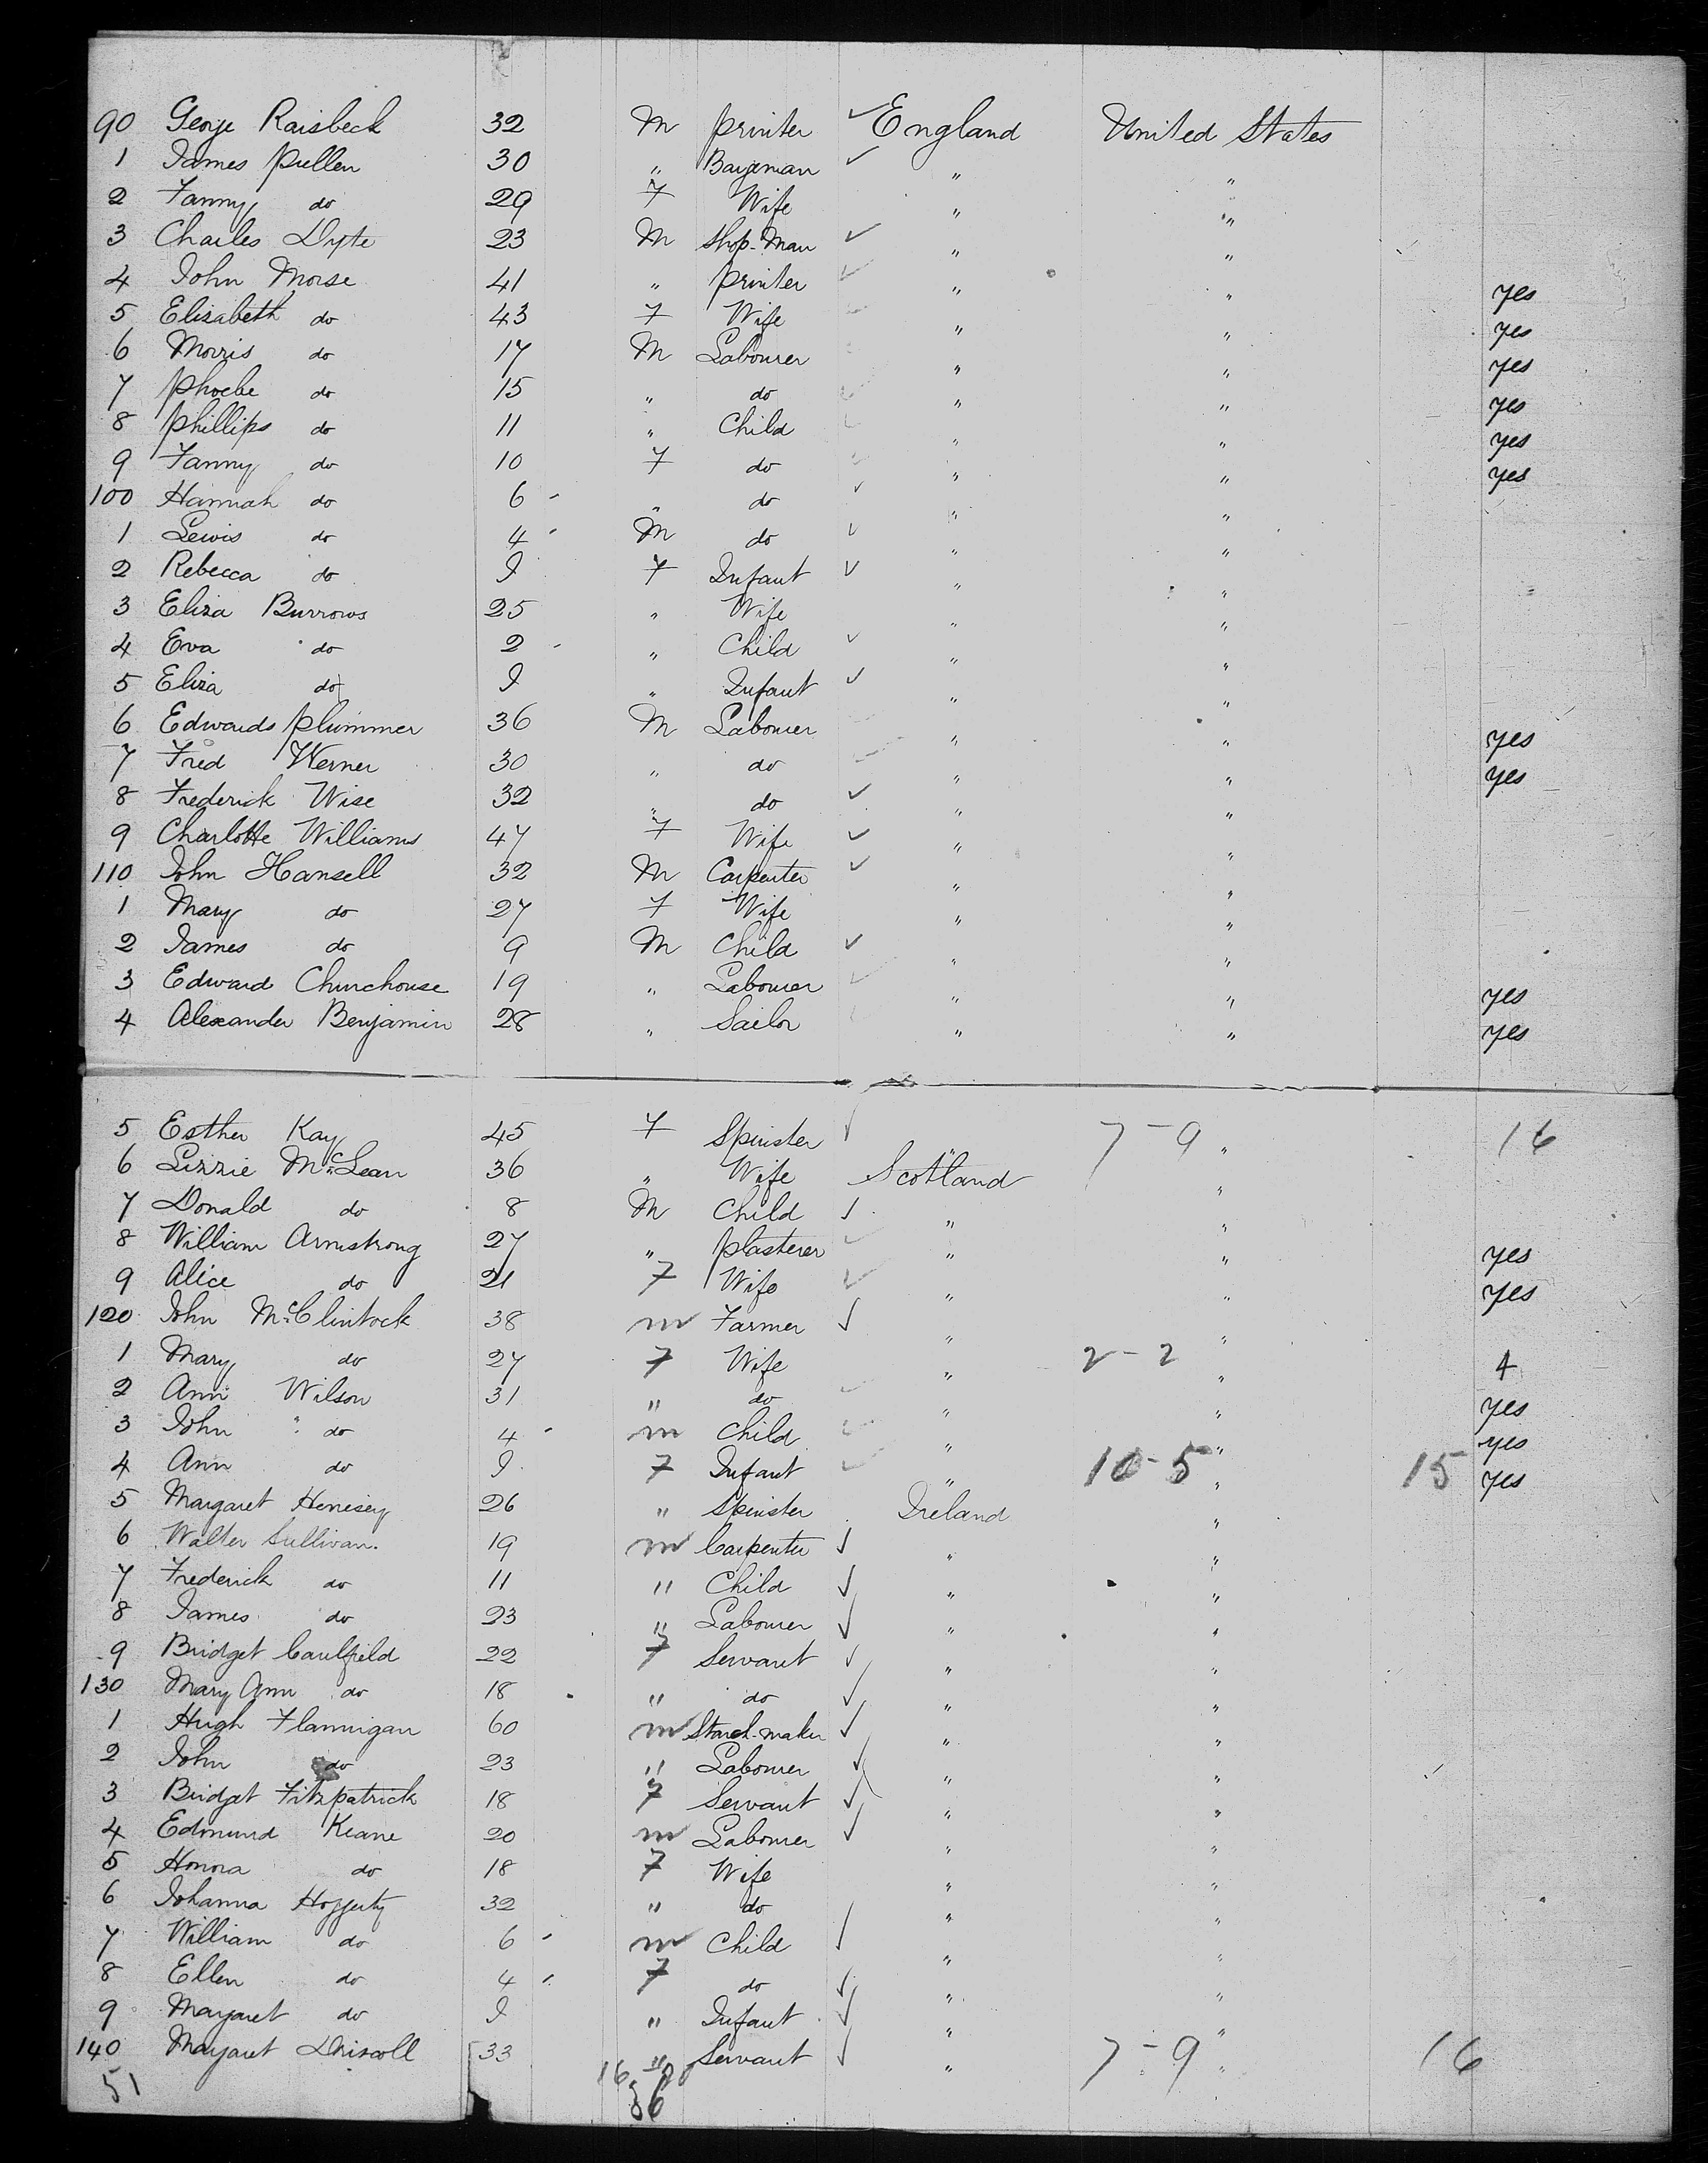 90 George Raisbeck 32 M printer ✓ England United States
1 James Pullen 30 " Bargeman ✓ " "
2 Fanny do 29 F Wife " "
3 Charles Dyte 23 M Shop-Man ✓ " "
4 John Morse 41 " printer ✓ " " yes
5 Elizabeth do 43 F Wife " " yes
6 Morris do 17 M Labourer " " yes
7 Phoebe do 15 " do " " yes
8 Phillips do 11 " Child " " yes
9 Fanny do 10 F do " " yes
100 Hannah do 6 " do ✓ " "
1 Lewis do 4 M do ✓ " "
2 Rebecca do I F Infant ✓ " "
3 Eliza Burrows 25 " Wife " "
4 Eva do 2 " Child ✓ " "
5 Eliza do I " Infant ✓ " "
6 Edwards Plummer 36 M Labourer " " yes
7 Fred Werner 30 " do " " yes
8 Frederick Wise 32 " do ✓ " "
9 Charlotte Williams 47 F Wife ✓ " "
110 John Hansell 32 M Carpenter ✓ " "
1 Mary do 27 F Wife " "
2 James do 9 M Child ✓ " "
3 Edward Churchouse 19 " Labourer ✓ " " yes
4 Alexander Benjamin 28 " Sailor " " yes
5 Esther Kay 45 F Spinster ✓ " 7-9 " 16
6 Lizzie McLean 36 " Wife Scotland "
7 Donald do 8 M Child ✓ " "
8 William Armstrong 27 " plasterer ✓ " " yes
9 Alice do 21 F Wife ✓ " " yes
120 John McClintock 38 m Farmer ✓ " "
1 Mary do 27 F Wife " 2-2 " 4
2 Ann Wilson 31 " do ✓ " " yes
3 John do 4 m Child " " yes
4 Ann do I F Infant ✓ " 10-5 " 15 yes
5 Margaret Henesey 26 " Spinster Ireland "
6 Walter Sullivan. 19 m Carpenter ✓ " "
7 Frederick do 11 " Child ✓ " "
8 James do 23 " Labourer ✓ " "
9 Bridget Caulfield 22 F Servant ✓ " "
130 Mary Ann do 18 " do ✓ " "
1 Hugh Flannigan 60 m Starch-maker ✓ " "
2 John do 23 " Labourer ✓ " "
3 Bridget Fitzpatrick 18 F Servant ✓ " "
4 Edmund Keane 20 m Labourer ✓ " "
5 Honora do 18 F Wife " "
6 Johanna Hoggerty 32 " do " "
7 William do 6 m Child ✓ " "
8 Ellen do 4 F do ✓ " "
9 Margaret do I " Infant ✓ " "
140 Margaret Driscoll 33 " Servant ✓ " 7-9 " 16
51 16
36